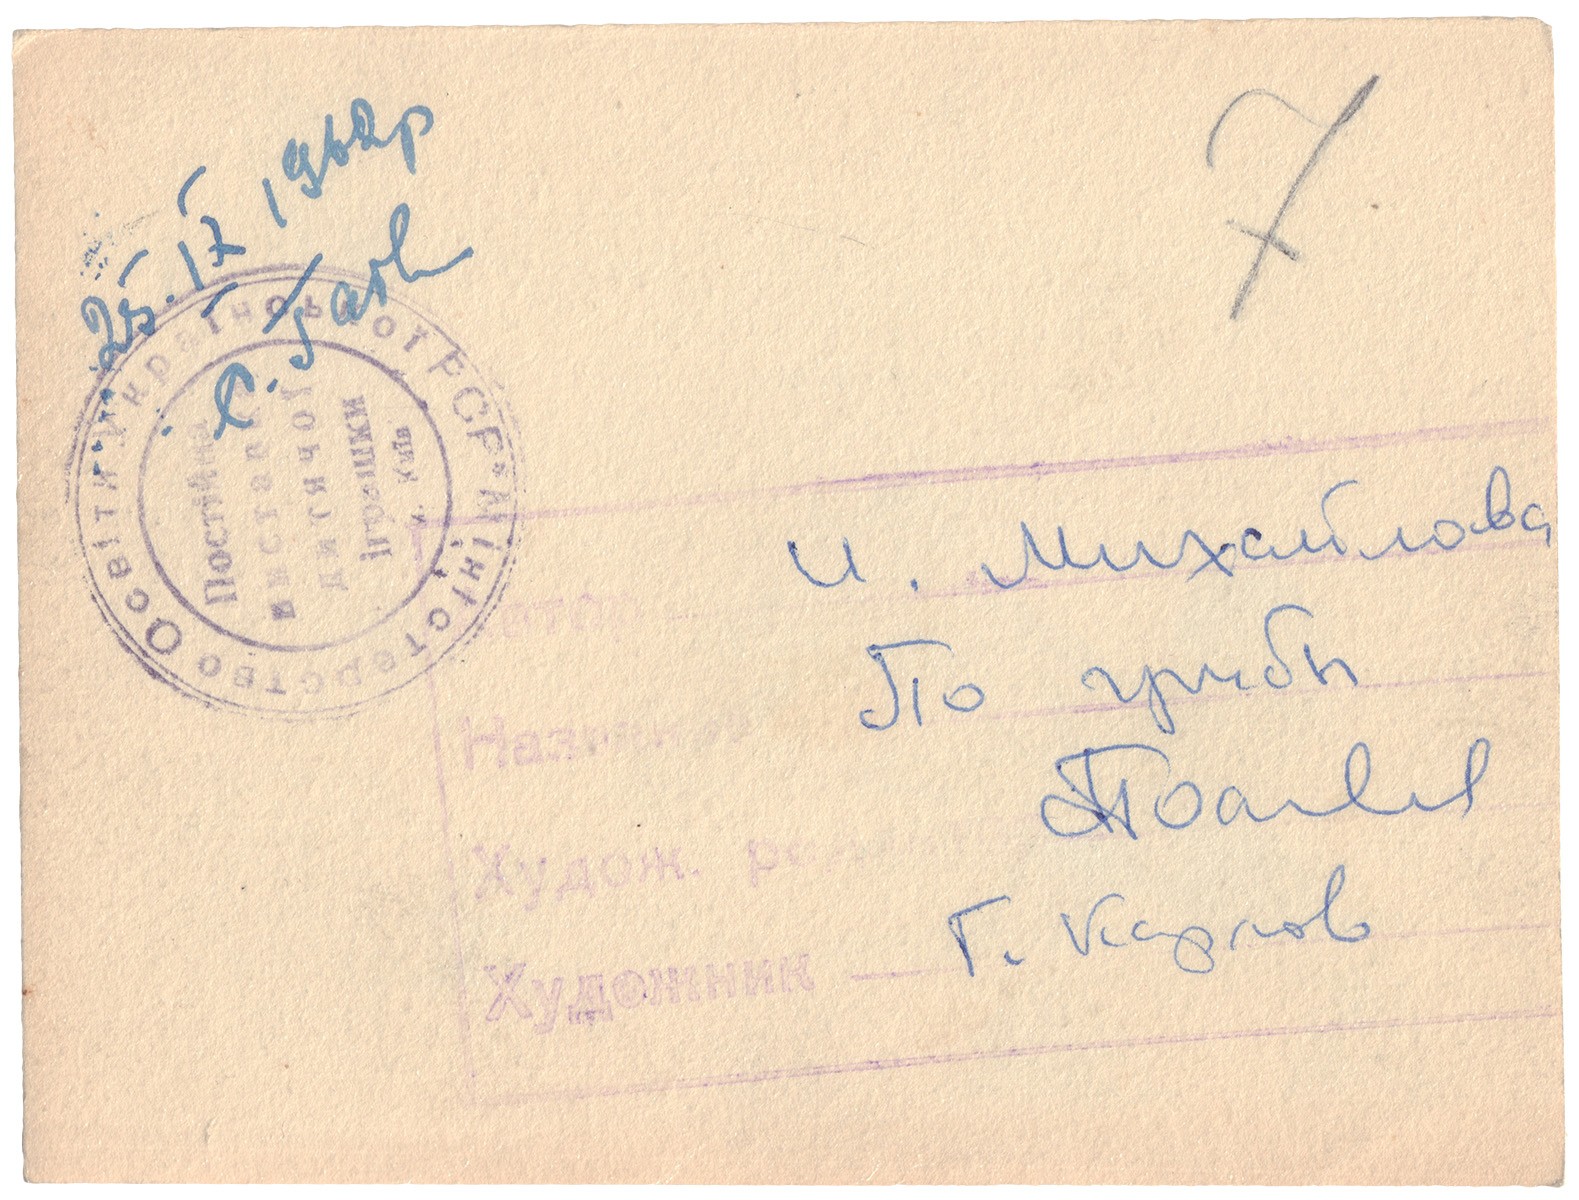 25.IV 1962р
7
Міністерство Освіти Української РСР *
Постійна
виставка
дитячої
іграшки
м. Київ
Автор —
И. Михайлова
Название
По грибы
Худож.
Художник —
Г. Карлов